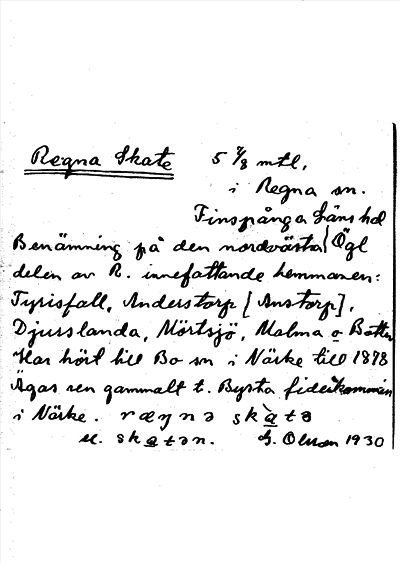 Regna Skate 5 7/8 mtl,
i Regna sn.
Finspånga läns hd
Benämning på den nordvästa Ögl
delen av R. innefattande hemmanen:
Tyrisfall, Anderstorp [Anstorp],
Djurslanda, Mörtsjö, Malma o Botten
Har hört till Bo sn i Närke till 1878
Ägas sen gammalt t. Bysta fideikommiss
i Närke. ræynə skatə
el. skatən. G. Olsson 1930